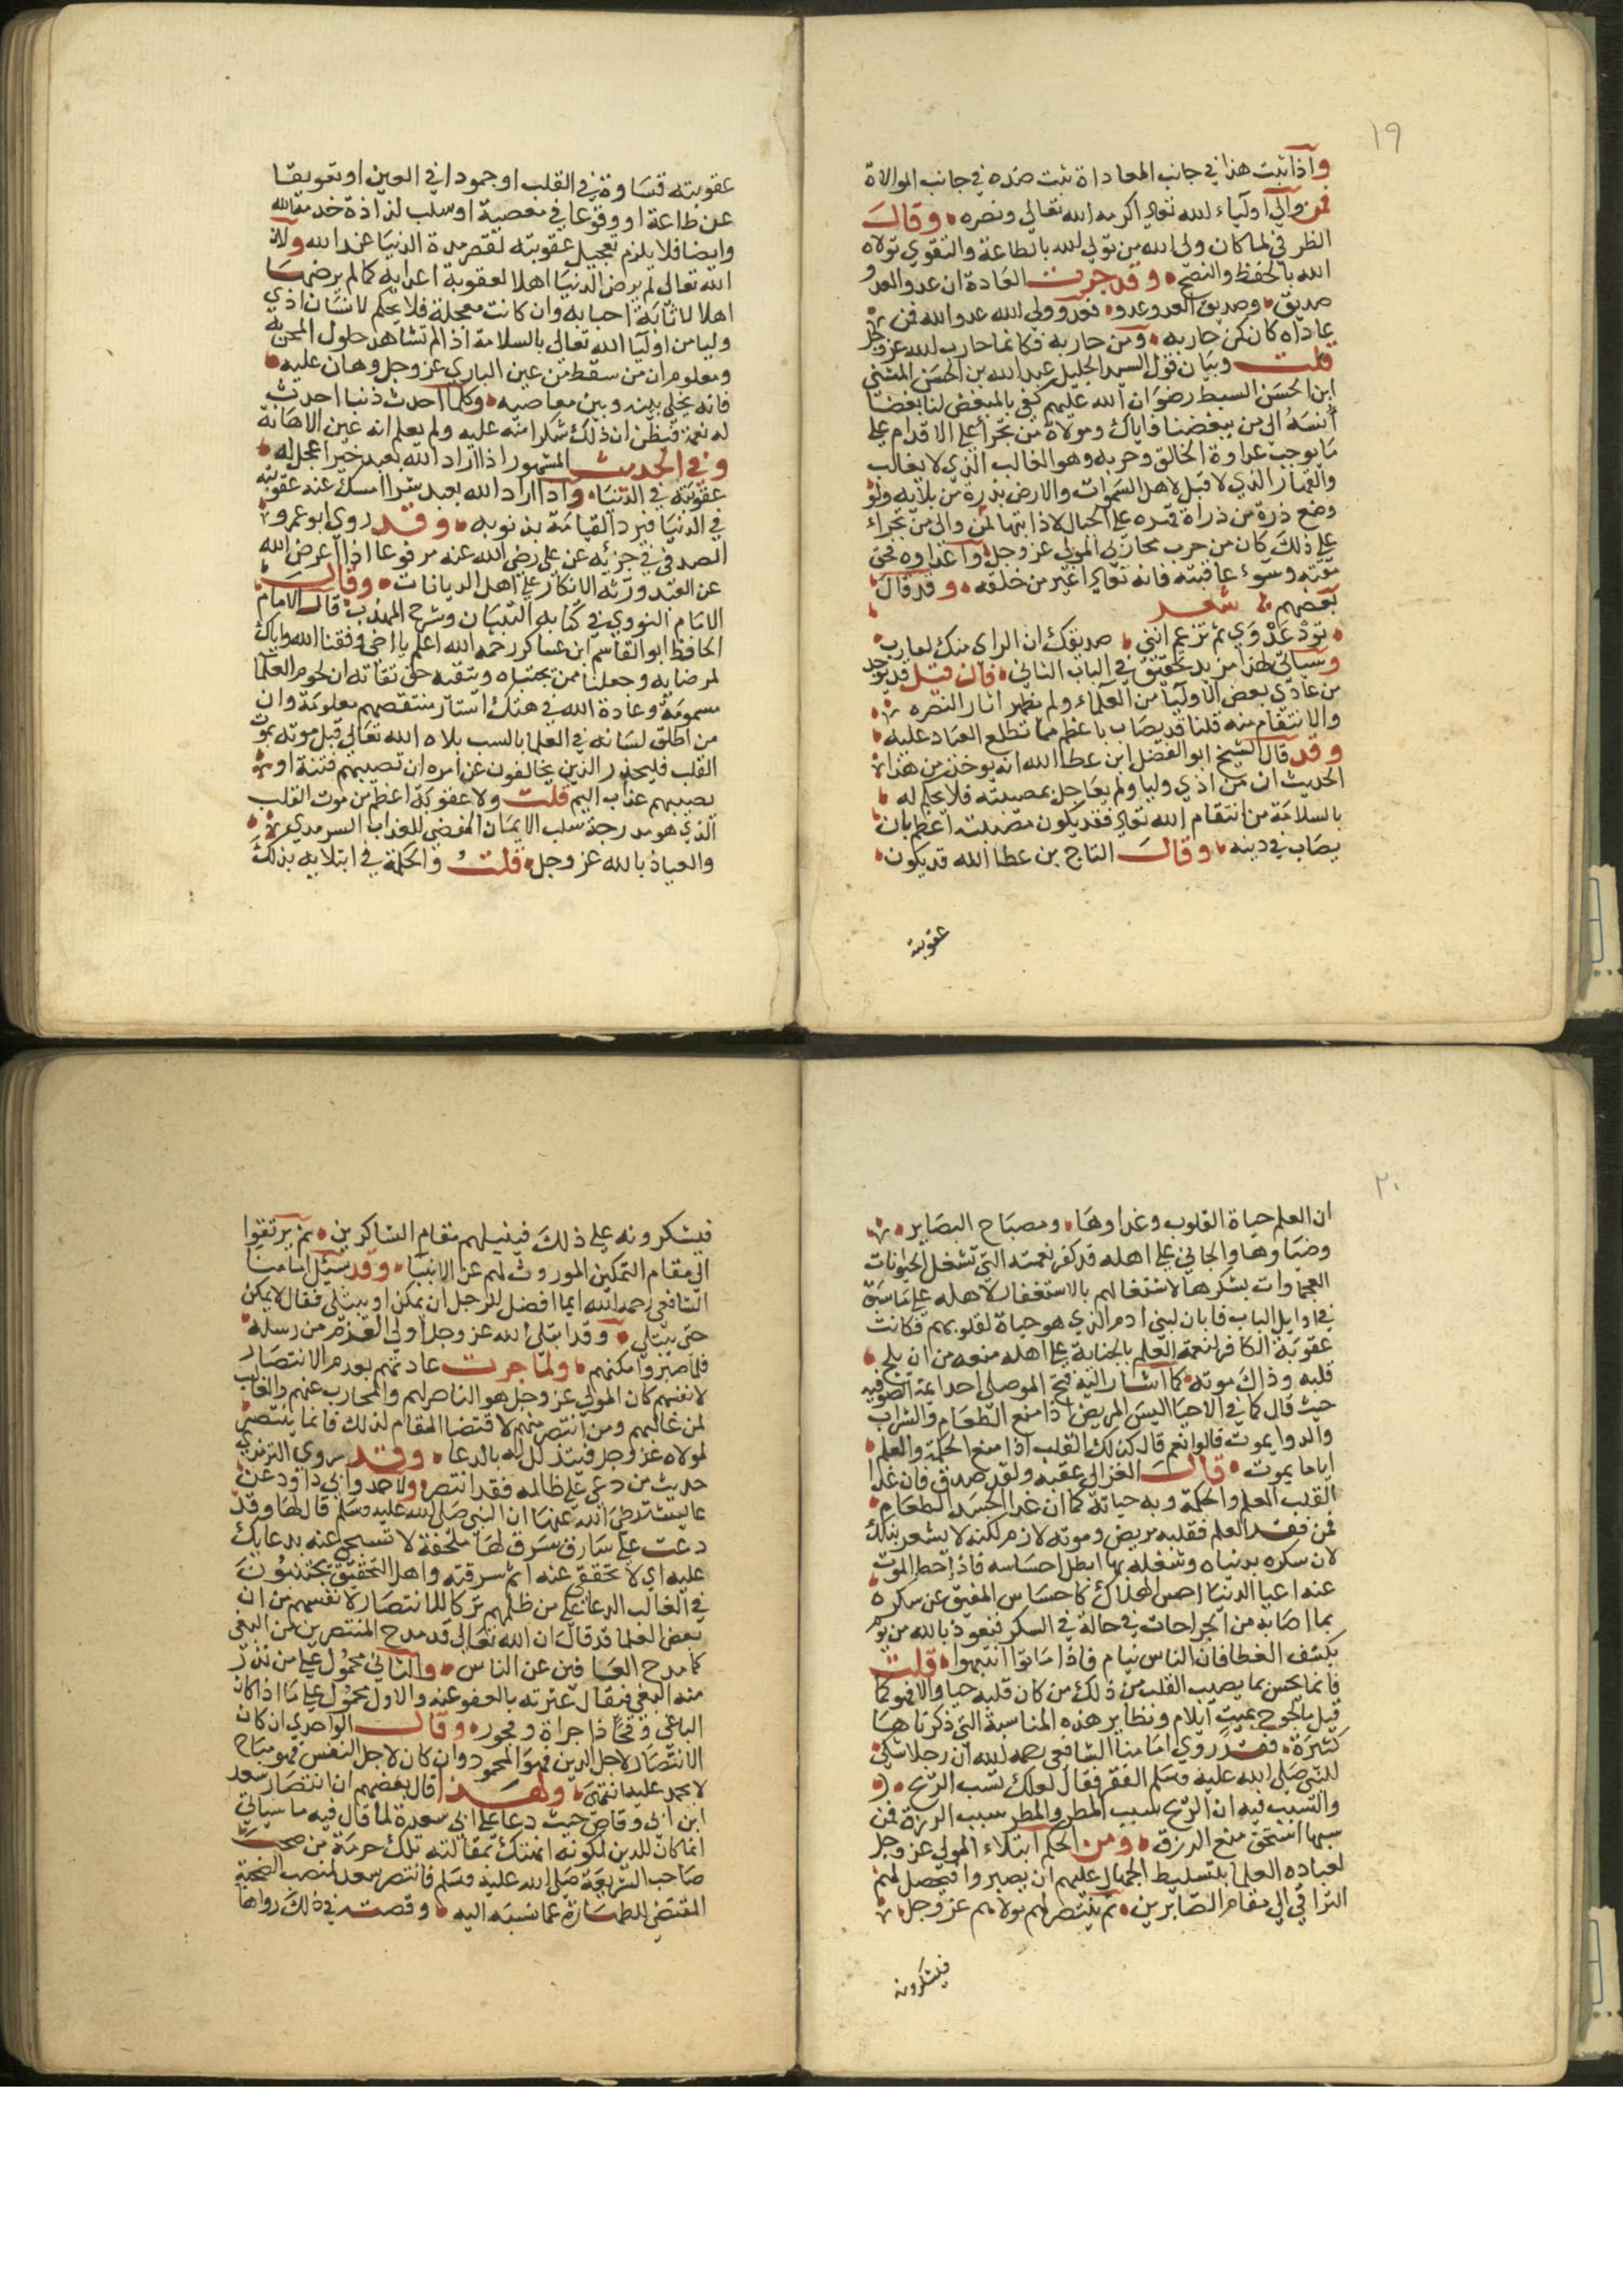 ١٩
واذا ثبت هذا في جانب المعاداة ثبت ضده في جانب الموالاة
فمن والي اوليآء لله تعالي اكرمه الله تعالي ونصره وقال
الله بالحفظ والنصح وقد جرت العادة ان عدو العدو
صديق وصديق العدو عدو فعدو ولي الله عدو الله فمن
عاداه كان كمن حاربه ومن حاربه فكانما حارب الله عز وجل
قلت وبيان قول السيد الجليل عبد الله بن الحسن المثني
ابن الحسن السبط رضوان الله عليهم كفي بالمبغض لنا بغضا
أنسبه الي من يبغضنا فاياك وموالاة من تجرأ علي الاقدام علي
ما يوجب عداوة الخالق وحربه وهو الغالب الذي لا يغالب
والقهار الذي لا قبل لاهل السموات والارض بذرة من بلايه ولو
وضع ذرة من ذراة قهره علي الجبال لاذابتها لمن والي من تجراء
علي ذلك كان من حرب محاربي المولي عز وجل واعداوه فحق
مقته وسوء عاقبته فانه تعالي اغير من خلقه وقد قال
بعضهم شعر
تود عدوي ثم تزعم انني صديقك ان الراي منك لعازب
وسياتي لهذا مزيد تحقيق في الباب الثاني فان قيل قد يوجد
من عادي بعض الاوليا من العلماء ولم تظهر اثار النصره
والانتقام منه قلنا قد يصاب باعظم مما تطلع العباد عليه
وقد قال الشيخ ابو الفضل ابن عطا الله انه يوخذ من هذا
الحديث ان من اذي وليا ولم يعاجل بمصيبته فلا يحكم له
بالسلامة من انتقام الله تعالي فقد يكون مصيبته اعظم بان
يصاب في دينه وقال التاج بن عطا الله قد يكون
عقوبته
عقوبته قساوة في القلب او جمودا في العين او تعويقا
عن طاعة او وقوعا في معصية او سلب لذاذة خدمة الله
وايضا فلا يلزم تعجيل عقوبته لقصر مدة الدنيا عند الله ولان
الله تعالي لم يرض الدنيا اهلا لعقوبة اعدايه كما لم يرضها
اهلا لاثابة احبابه وان كانت معجلة فلا يحكم لانسان اذي
وليا من اوليا الله تعالي بالسلامة اذا لم تشاهد حلول المحن به
ومعلوم ان من سقط من عين الباري عز وجل وهان عليه
فانه يخلي بينه وبين معاصيه وكلما احدث ذنبا احدث
له نعمة فيظن ان ذلك شكرا منه عليه ولم يعلم انه عين الاهانة
وفي الحديث المشهور اذا اراد الله بعبد خيرا عجل له
عقوبته في الدنيا واذا اراد الله بعبد شرا امسك عنه عقوبته
في الدنيا فيرد القيامة بذنوبه وقد روي ابو عمرو
الصدفي في جزئه عن علي رضي الله عنه مرفوعا اذا اعرض الله
عن العبد ورثه الانكار علي اهل الديانات وقال
الامام النووي في كتابه التبيان وشرح المهذب قال الامام
الحافظ ابو القاسم ابن عساكر رحمه الله اعلم يا اخي وفقنا الله واياك
لمرضايه وجعلنا ممن يخشاه ويتقيه حق تقاته ان لحوم العلما
مسمومة وعادة الله في هتك استار منتقصهم معلومة وان
من اطلق لسانه في العلما بالسب بلاه الله تعالي قبل موته بموت
القلب فليحذر الذين يخالفون عن امره ان تصيبهم فتنة او
يصيبهم عذاب اليم قلت ولا عقوبة اعظم من موت القلب
الذي هو مدرجة سلب الايمان المفضي للعذاب السرمدي
والعياذ بالله عز وجل قلت والحكمة في ابتلايه بذلك
٢٠
ان العلم حياة القلوب وغذاوها ومصباح البصاير
وضياوها والجاني علي اهله قد كفر نعمته التي تشغل الحيوانات
العجماوات بشكرها لاشتغالهم بالاستغفار لاهله علي ما سبق
في اوايل الباب فابان لبني ادم الذي هو حياة لقلوبهم فكانت
عقوبة الكافر لنعمة العلم بالجناية علي اهله منعه من ان يلج
قلبه وذاك موته كما اشار اليه فتح الموصلي احد ايمة الصوفيه
حيث قال كما في الاحيا اليس المريض اذا منع الطعام والشراب
والدوا يموت قالوا نعم قال كذلك القلب اذا منع الحكمة والعلم
اياما يموت قال الغزالي عقبه ولقد صدق فان غذا
القلب العلم والحكمة وبه حياته كما ان غذا الجسد الطعام
فمن فقد العلم فقلبه مريض وموته لازم لكنه لا يشعر بذلك
لان سكره بدنياه وشغله بها ابطل احساسه فاذا حط الموت
عنه اعيا الدنيا احس بهلاك كاحساس المفيق عن سكره
بما اصابه من الجراحات في حالة في السكر فنعوذ بالله من يوم
يكشف الغطا فان الناس نيام فاذا ماتوا انتبهوا قلت
فانما يحس بما يصيب القلب من ذلك من كان قلبه حيا والا فهو كما
قيل ما لجرح بميت ايلام ونظاير هذه المناسبة التي ذكرناها
كثيرة فقد روي امامنا الشافعي رحمه الله ان رجلا شكي
للنبي صلي الله عليه وسلم الفقر فقال لعلك تسب الريح
والسبب فيه ان الريح سبب المطر والمطر سبب الرزق فمن
سبها استحق منع الرزق ومن الحكم ابتلاء المولي عز وجل
لعباده العلما بتسليط الجهال عليهم ان يصبروا فيحصل لهم
الترافي الي مقام الصابرين ثم ينتصر لهم مولاهم عز وجل
فيشكرونه
فيشكرونه علي ذلك فينيلهم مقام الشاكرين ثم يرتقوا
الي مقام التمكين الموروث لهم عن الانبيا وقد سئل امامنا
الشافعي رحمه الله ايما افضل للرجل ان يمكن او يبتلي فقال لا يمكن
حتي يبتلي وقد ابتلي الله عز وجل اولي العزم من رسله
فلما صبروا مكنهم ولما جرت عادتهم بعدم الانتصار
لانفسهم كان المولي عز وجل هو الناصر لهم والمحارب عنهم والغالب
لمن غالبهم ومن انتصر منهم لاقتضا المقام لذلك فانما ينتصر
لمولاه عز وجل فيتذلل له بالدعا وقد روي الترمذي
حديث من دعي علي ظالمه فقد انتصر ولاحمد وابي داود عن
عايشة رضي الله عنها ان النبي صلي الله عليه وسلم قال لها وقد
دعت علي سارق سرق لها ملحفة لا تسبخي عنه بدعايك
عليه اي لا تخففي عنه اثم سرقته واهل التحقيق يجتنبون
في الغالب الدعا علي من ظلمهم تركا للانتصار لانفسهم من ان
بعض العلما قد قال ان الله تعالي قد مدح المنتصرين من البغي
كما مدح العافين عن الناس والثاني محمول علي من ندر
منه البغي فيقال عثرته بالعفو عنه والاول محمول علي ما اذا كان
الباغي وقحا ذا جراة وفجور وقال الواحدي ان كان
الانتصار لاجل الدين فهو المحمود وان كان لاجل النفس فهو مباح
لا يحمد عليه انتهي ولهذا قال بعضهم ان انتصار سعد
ابن ابي وقاص حيث دعا علي ابي سعدة لما قال فيه ما سياتي
انما كان للدين لكونه انتهك بمقالته تلك حرمة من صحب
صاحب الشريعة صلي الله عليه وسلم فانتصر سعد لمنصب الصحبة
المقتضي للطهارة عما نسبه اليه وقصته في ذلك رواها